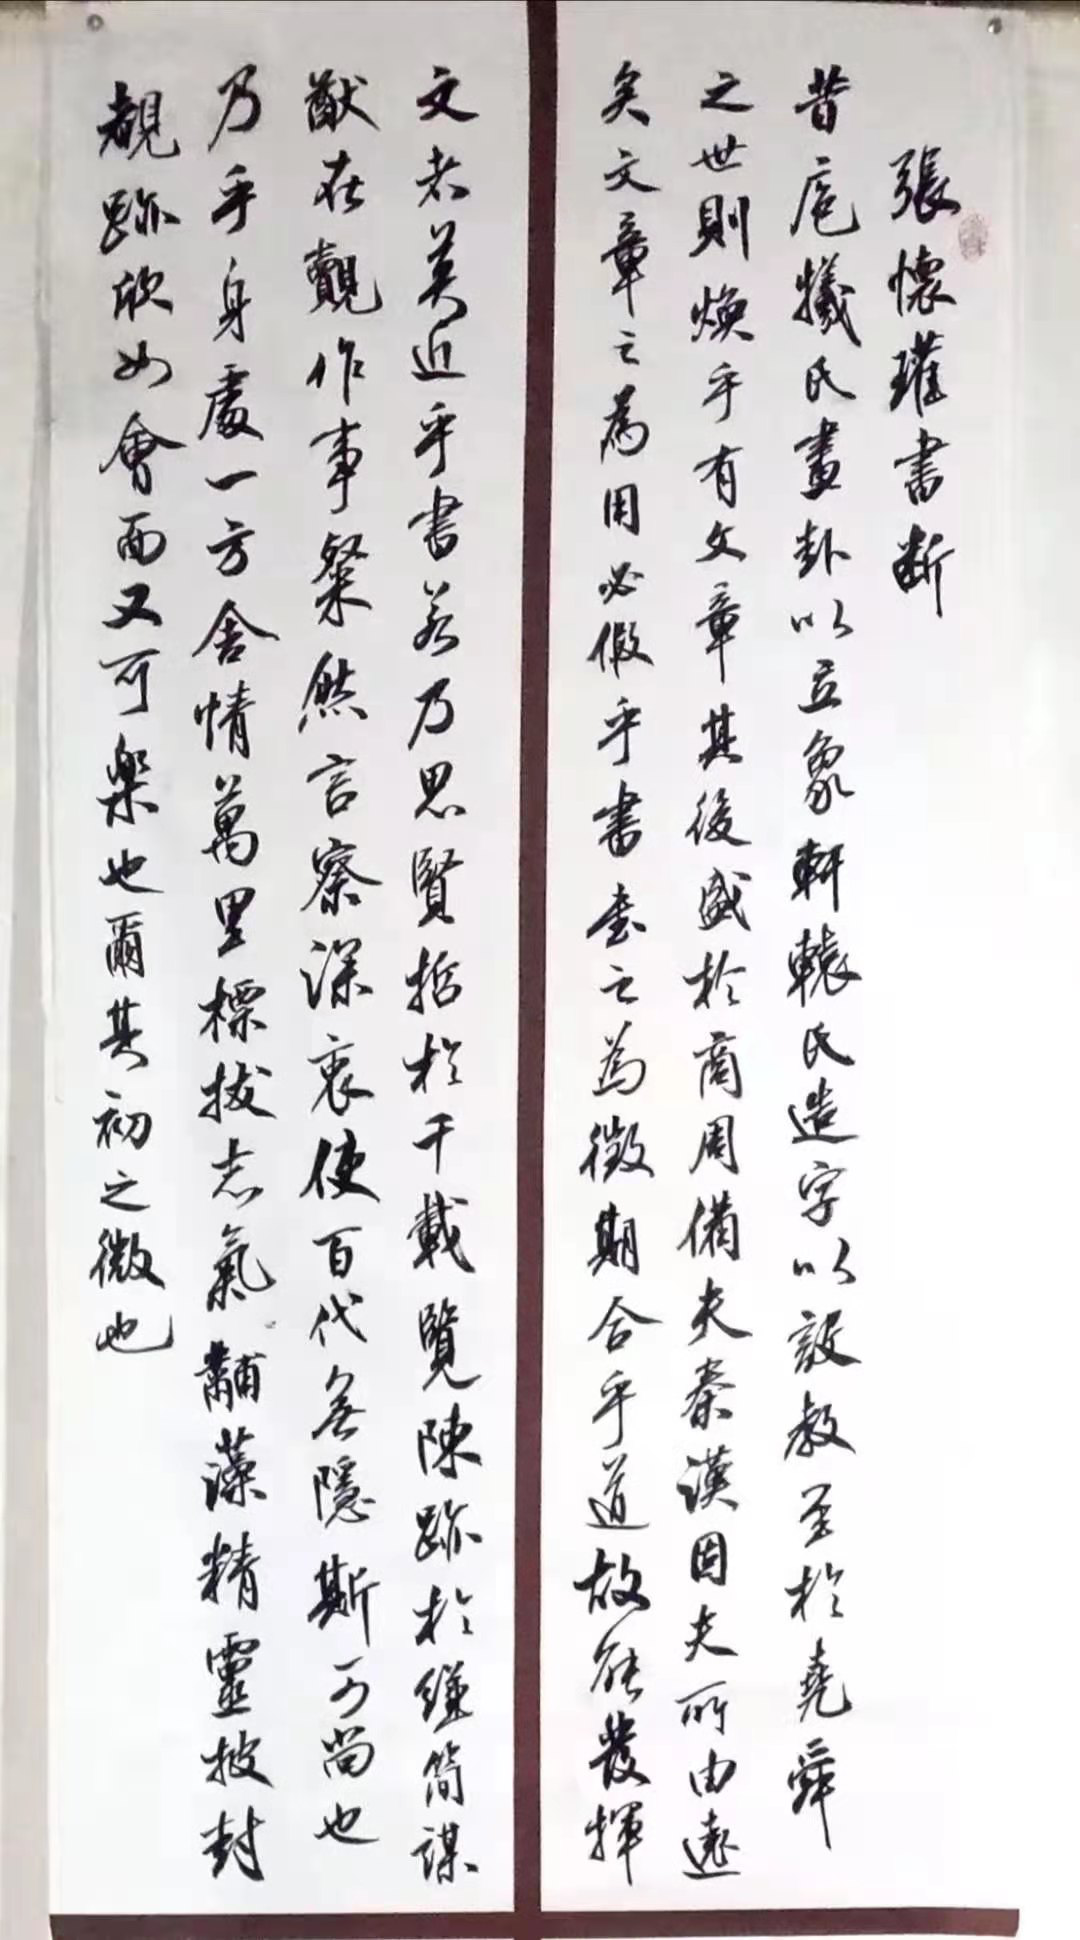 張懷瓘書断
昔庖犧氏畫卦以立象軒轅氏造字以設教至於堯舜
之世則煥乎有文章其後盛於商周備夫秦漢固夫所由遠
矣文章之為用必假乎書書之為徵期合乎道故能發揮
文者莫近乎書若乃思賢哲於千載覽陳跡於縑簡謀
猷在觀作事粲然言察深衷使百代無隱斯可尚也
乃乎身處一方含情萬里標拔志氣黼藻精靈披封
覩跡欣如會面又可樂也爾其初之微也